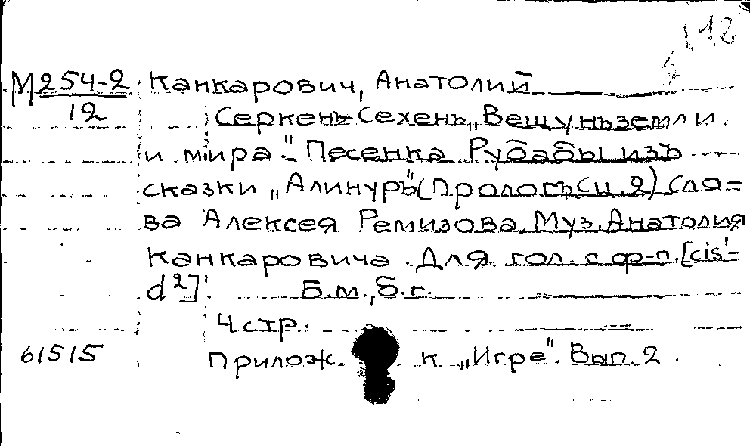 112
М 254-2 Канкарович, Анатолий
12 Серкен-Сехень „Вещунъ земли
и мира". Песенка Рубабы изъ
сказки „Алинуръ" (Прологъ сц. 2) Сло-
ва Алексея Ремизова. Муз. Анатолия
Канкаровича. Для гол. с ф-п. [cis'-
d²] Б.м., б.г.
4 стр.
61515 Прилож. к „Игре". Вып. 2.